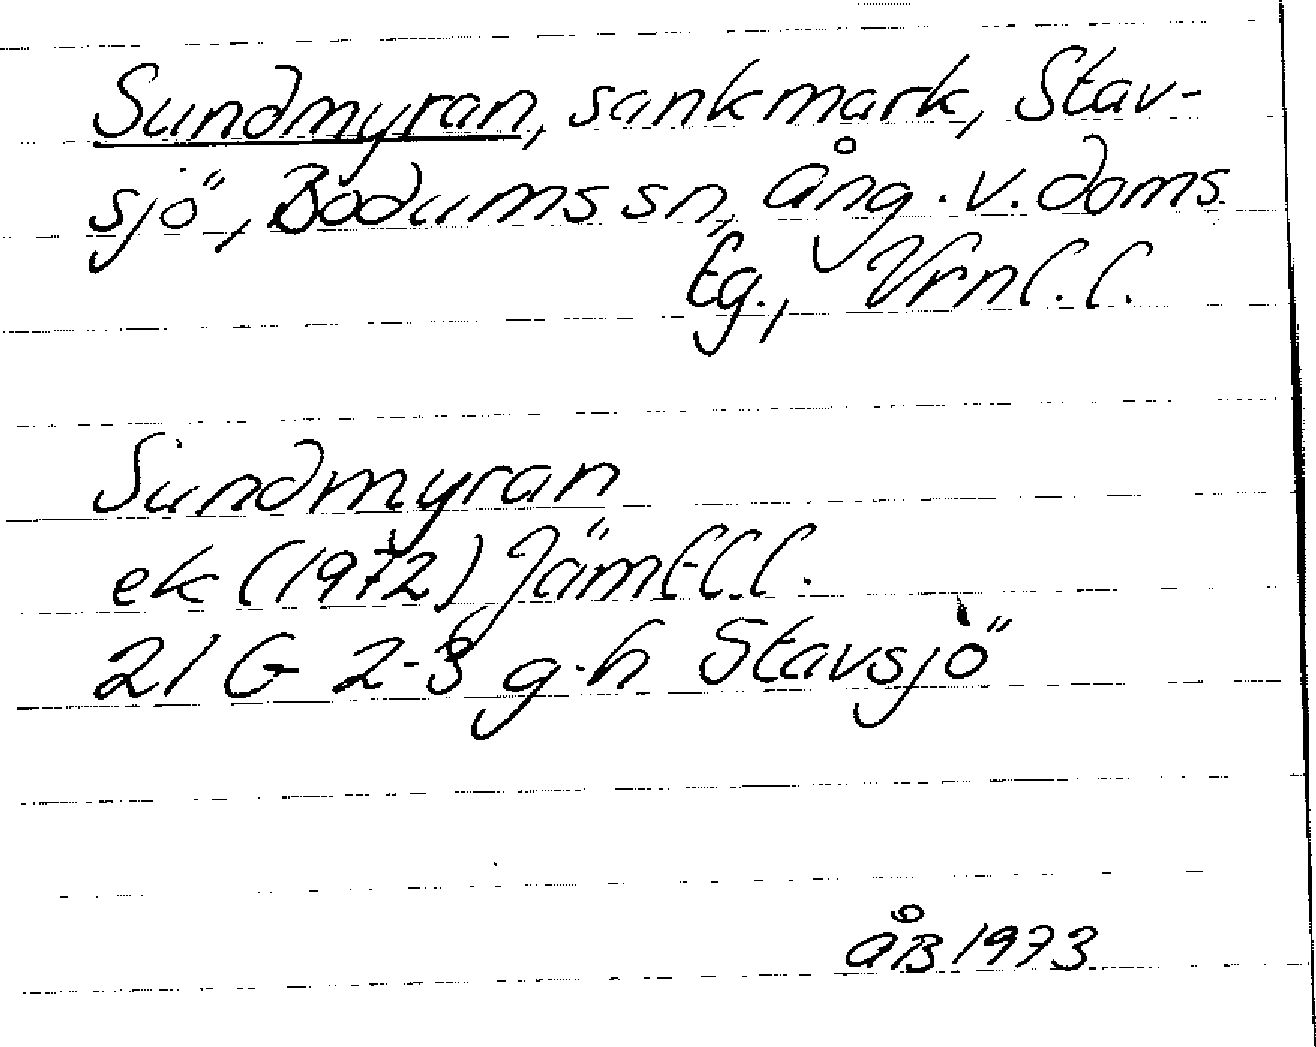 Sundmyran, sankmark, Stav-
sjö, Bodums sn, Ång. v. doms.
Eg., Vrnl. l.
Sundmyran
ek (1972) Jämtl. l.
21 G 2-3 g-h Stavsjö
ÅB 1973